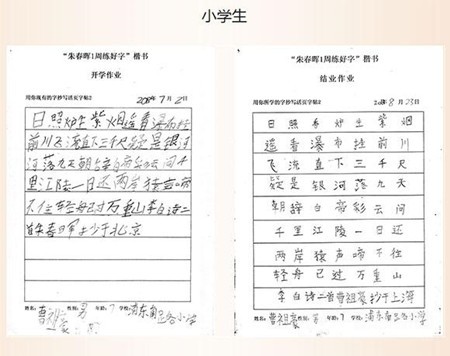 小学生
“朱春晖1周练好字”楷书
开学作业
用你现有的字抄写活页字帖2
2018年7月2日
日照炉生紫烟遥看瀑布挂
前川飞流直下三千尺疑是银河
河落九天朝辞白帝彩云间
千里江陵一日还两岸猿声啼
不住轻舟已过万重山李白诗二
首朱春日军于少于北京
姓名: 男 年龄:7 学校:浦东 小学
“朱春晖1周练好字”楷书
结业作业
用你所学的字抄写活页字帖2
2018年8月23日
日照香炉生紫烟
遥看瀑布挂前川
飞流直下三千尺
疑是银河落九天
朝辞白帝彩云间
千里江陵一日还
两岸猿声啼不住
轻舟已过万重山
李白诗二首曹祖豪抄于上海
姓名:曹祖豪 性别:男 年龄:7 学校:浦东 小学